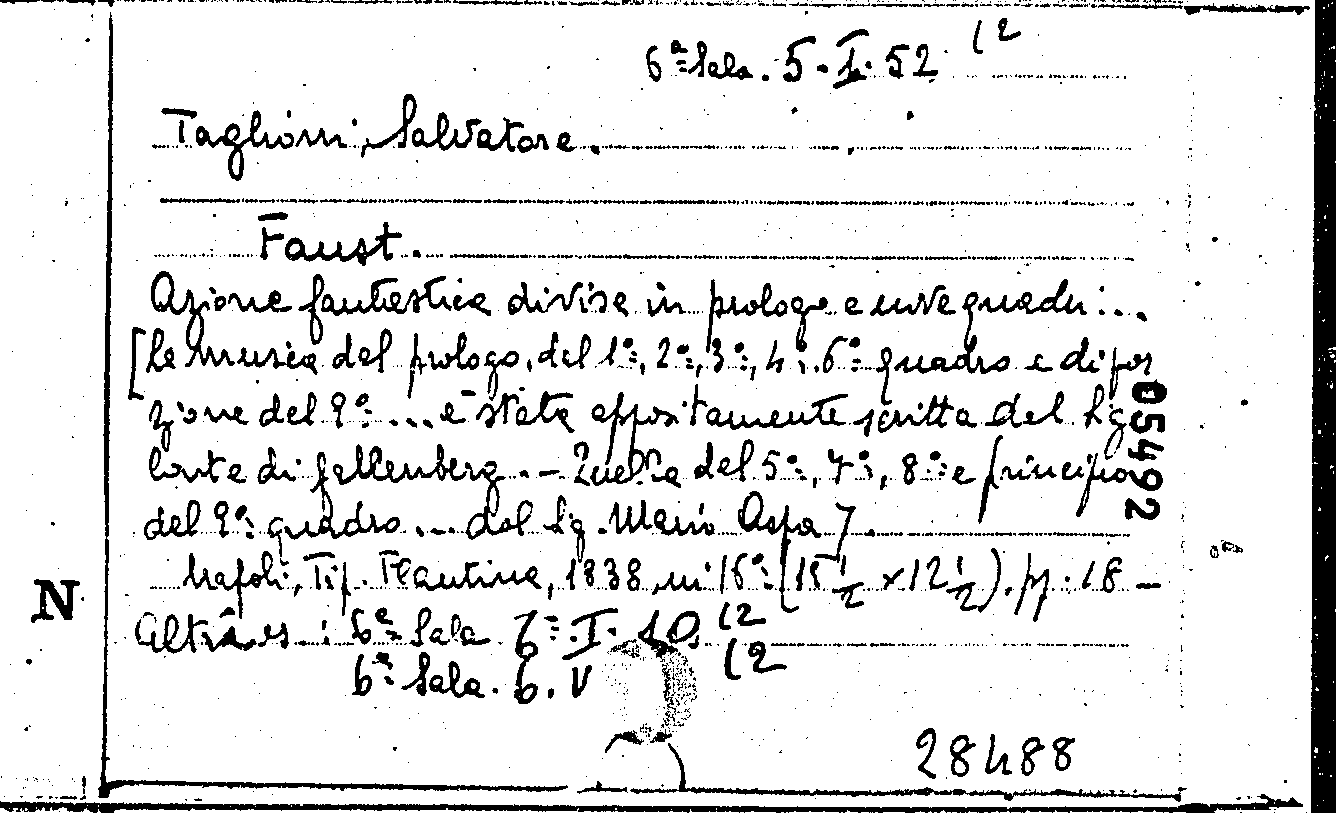 6ª Sala. 5. I. 52 (2
Taglioni, Salvatore.
Faust.
Azione fantastica divisa in prologo e nove quadri...
[La musica del prologo, del 1º, 2º, 3º, 4º, 6º quadro e di por
zione del 9º ... è stata appositamente scritta dal Sig.
Conte di Gallenberg. - Quella del 5º, 7º, 8º e principio
del 9º quadro ... dal Sig. Mario Aspa].
Napoli, Tip. Flautina, 1838, in 16º (15 1/2 x 12 1/2). pp. 18 -
Altro es: 6ª Sala 6. I. 10. (2
6ª Sala. 6. V (2
28488
05492
N